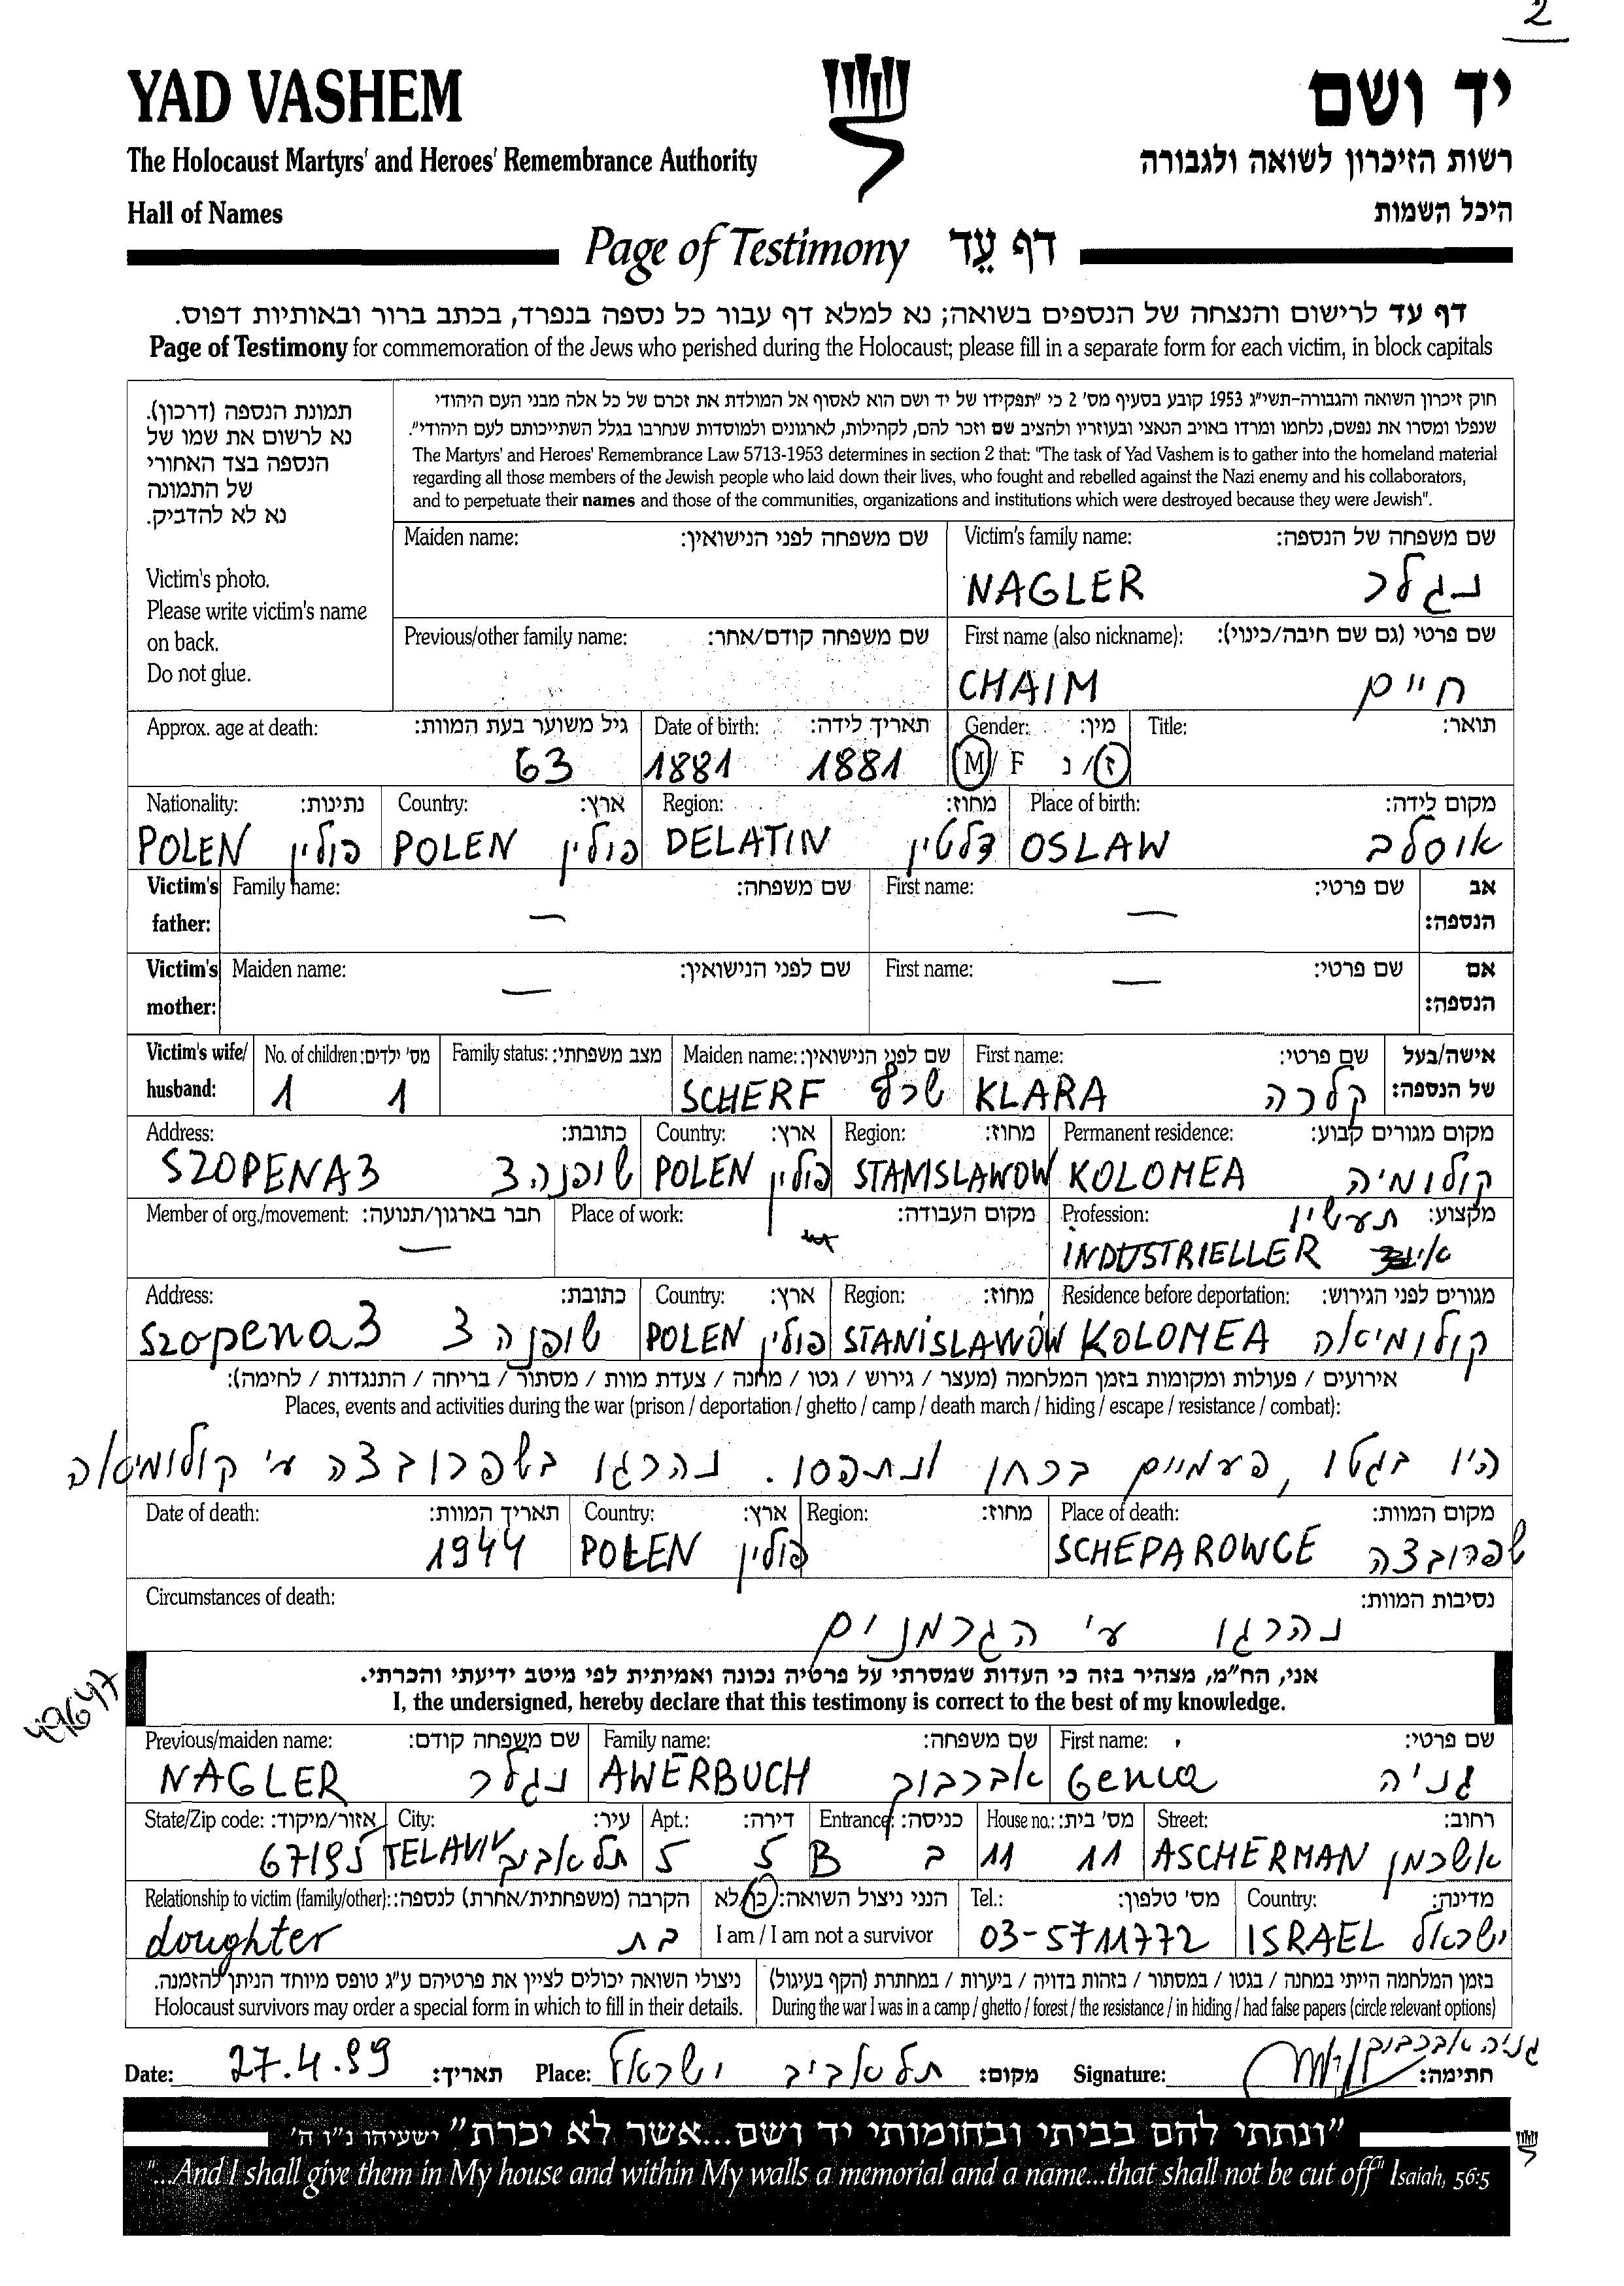 2
YAD VASHEM יד ושם
The Holocaust Martyrs' and Heroes' Remembrance Authority רשות הזיכרון לשואה ולגבורה
Hall of Names היכל השמות
Page of Testimony דף עֵד
דף עד לרישום והנצחה של הנספים בשואה; נא למלא דף עבור כל נספה בנפרד, בכתב ברור ובאותיות דפוס.
Page of Testimony for commemoration of the Jews who perished during the Holocaust; please fill in a separate form for each victim, in block capitals
תמונת הנספה (דרכון).
נא לרשום את שמו של
הנספה בצד האחורי
של התמונה
נא לא להדביק.
Victim's photo.
Please write victim's name
on back.
Do not glue.
חוק זיכרון השואה והגבורה-תשי"ג 1953 קובע בסעיף מס' 2 כי "תפקידו של יד ושם הוא לאסוף אל המולדת את זכרם של כל אלה מבני העם היהודי
שנפלו ומסרו את נפשם, נלחמו ומרדו באויב הנאצי ובעוזריו ולהציב שם וזכר להם, לקהילות, לארגונים ולמוסדות שנחרבו בגלל השתייכותם לעם היהודי".
The Martyrs' and Heroes' Remembrance Law 5713-1953 determines in section 2 that: "The task of Yad Vashem is to gather into the homeland material
regarding all those members of the Jewish people who laid down their lives, who fought and rebelled against the Nazi enemy and his collaborators,
and to perpetuate their names and those of the communities, organizations and institutions which were destroyed because they were Jewish".
Maiden name: שם משפחה לפני הנישואין: Victim's family name: שם משפחה של הנספה:
NAGLER נגלר
Previous/other family name: שם משפחה קודם/אחר: First name (also nickname): שם פרטי (גם שם חיבה/כינוי):
CHAIM חיים
Approx. age at death: גיל משוער בעת המוות: Date of birth: תאריך לידה: Gender: מין: Title: תואר:
63 1881 1881 M/ F ז/ נ
Nationality: נתינות: Country: ארץ: Region: מחוז: Place of birth: מקום לידה:
POLEN פולין POLEN פולין DELATIN דלטין OSLAW אוסלב
Victim's Family name: שם משפחה: First name: שם פרטי: אב
father: — — הנספה:
Victim's Maiden name: שם לפני הנישואין: First name: שם פרטי: אם
mother: — — הנספה:
Victim's wife/ No. of children: מס' ילדים: Family status: מצב משפחתי: Maiden name: שם לפני הנישואין: First name: שם פרטי: אישה/בעל
husband: 1 1 SCHERF שרף KLARA קלרה של הנספה:
Address: כתובת: Country: ארץ: Region: מחוז: Permanent residence: מקום מגורים קבוע:
SZOPENA 3 שופנה 3 POLEN פולין STANISLAWOW KOLOMEA קולומיה
Member of org./movement: חבר בארגון/תנועה: Place of work: מקום העבודה: Profession: מקצוע: תעשין
— INDUSTRIELLER
Address: כתובת: Country: ארץ: Region: מחוז: Residence before deportation: מגורים לפני הגירוש:
Szopena 3 שופנה 3 POLEN פולין STANISLAWÓW KOLOMEA קולומיאה
אירועים / פעולות ומקומות בזמן המלחמה (מעצר / גירוש / גטו / מחנה / צעדת מוות / מסתור / בריחה / התנגדות / לחימה):
Places, events and activities during the war (prison / deportation / ghetto / camp / death march / hiding / escape / resistance / combat):
היו בגטו, פעמיים ברחו ונתפסו. נהרגו בשפרובצה ע"י קולומיאה
Date of death: תאריך המוות: Country: ארץ: Region: מחוז: Place of death: מקום המוות:
1944 POLEN פולין SCHEPAROWCE שפרובצה
Circumstances of death: נסיבות המוות:
נהרגו ע"י הגרמנים
אני, הח"מ, מצהיר בזה כי העדות שמסרתי על פרטיה נכונה ואמיתית לפי מיטב ידיעתי והכרתי.
I, the undersigned, hereby declare that this testimony is correct to the best of my knowledge.
Previous/maiden name: שם משפחה קודם: Family name: שם משפחה: First name: שם פרטי:
NAGLER נגלר AWERBUCH אברבוך Genia גניה
State/Zip code: אזור/מיקוד: City: עיר: Apt.: דירה: Entrance: כניסה: House no.: מס' בית: Street: רחוב:
TELAVIV תל אביב 5 5 B ב 11 11 ASCHERMAN אשרמן
Relationship to victim (family/other): הקרבה (משפחתית/אחרת) לנספה: הנני ניצול השואה: כן/לא Tel.: מס' טלפון: Country: מדינה:
doughter בת I am / I am not a survivor 03-5711772 ISRAEL ישראל
ניצולי השואה יכולים לציין את פרטיהם ע"ג טופס מיוחד הניתן להזמנה. בזמן המלחמה הייתי במחנה / בגטו / במסתור / בזהות בדויה / ביערות / במחתרת (הקף בעיגול)
Holocaust survivors may order a special form in which to fill in their details. During the war I was in a camp / ghetto / forest / the resistance / in hiding / had false papers (circle relevant options)
גניה אברבוך
Date: 27.4.99 תאריך: Place: תל אביב ישראל מקום: Signature: חתימה:
"ונתתי להם בביתי ובחומותי יד ושם...אשר לא יכרת" ישעיהו נ"ו ה'
"...And I shall give them in My house and within My walls a memorial and a name...that shall not be cut off" Isaiah, 56:5